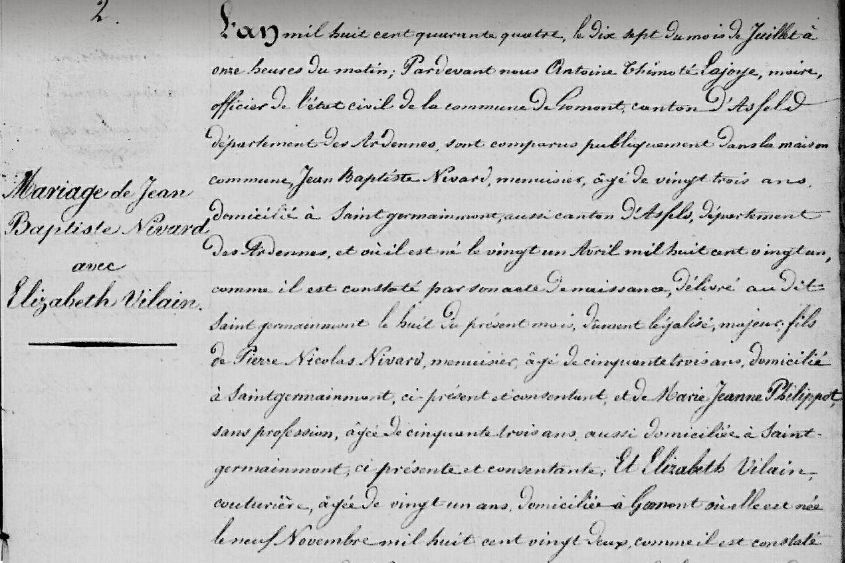 2.
L'an mil huit cent quarante quatre, le dix sept du mois de Juillet à
onze heures du matin; Pardevant nous Antoine Thimoté Lajoye, maire,
officier de l'état civil de la commune de Gomont, canton d'Asfeld
département des Ardennes, sont comparus publiquement dans la maison
commune, Jean Baptiste Nivard, menuisier, âgé de vingt trois ans,
domicilié à Saintgermainmont, aussi canton d'Asfld, département
des Ardennes, et où il est né le vingt un Avril mil huit cent vingt un,
comme il est constaté par son acte de naissance, délivré au dit
Saint germainmont le huit du présent mois, dument légalisé, majeur, fils
de Pierre Nicolas Nivard, menuisier, âgé de cinquante trois ans, domicilié
à Saintgermainmont, ci-présent et consentant, et de Marie Jeanne Philippot,
sans profession, âgée de cinquante trois ans, aussi domiciliée à Saint-
germainmont, ci présente et consentante; Et Elizabeth Vilain,
couturière, âgée de vingt un ans, domiciliée à Gomont où elle est née
le neuf Novembre mil huit cent vingt deux, comme il est constaté
Mariage de Jean
Baptiste Nivard
avec
Elizabeth Vilain.